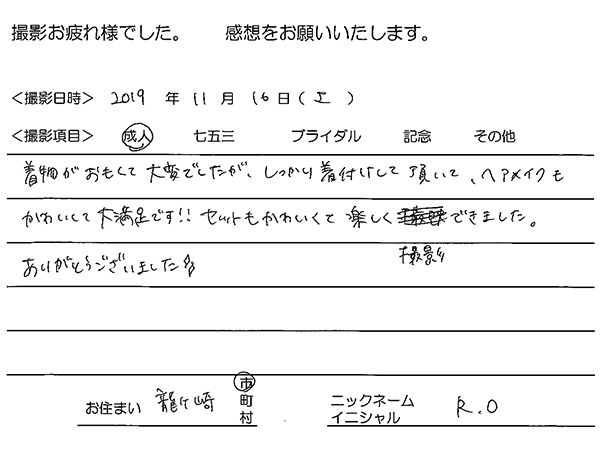 撮影お疲れ様でした。 感想をお願いいたします。
<撮影日時> 2019 年 11 月 16 日 (土)
<撮影項目> 成人 七五三 ブライダル 記念 その他
着物がおもくて大変でしたが、しっかり着付けして頂いて、ヘアメイクも
かわいくて大満足です!! セットもかわいくて楽しく撮影できました。
ありがとうございました
お住まい 龍ケ崎 市 町 村 ニックネーム イニシャル R.O